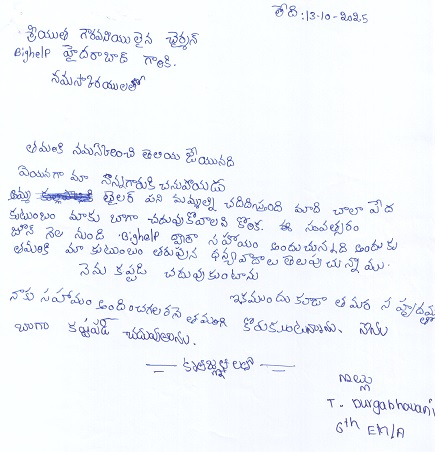 తేది: 13-10-2025
శ్రీయుత గౌరవనీయులైన ఛైర్మన్
Bighelp హైదరాబాద్ గారికి.
నమస్కారములతో
తమరికి నమస్కరించి తెలియజేయునది
ఏమనగా మా నాన్నగారు చనిపోయడు
అమ్మ టైలర్ పని మమ్మల్ని చదివిస్తుంది మాది చాలా పేద
కుటుంబం మాకు బాగా చదువుకోవాలని కోరిక. ఈ సంవత్సరం
జూన్ నెల నుండి Bighelp ద్వారా సహాయం అందుచున్నది అందుకు
తమరికి మా కుటుంబం తరుపున ధన్యవాదాలు తెలుపుచున్నాము.
నేను కష్టపడి చదువుకుంటాను
ఇకముందు కూడా తమరు
నాకు సహాయం అందించగలరని తమరిని కోరుకుంటున్నాను. నేను
బాగా కష్టపడి చదువుతాను.
కృతజ్ఞతలతో
ఇట్లు
T. Durgabhavani
6th EM/A